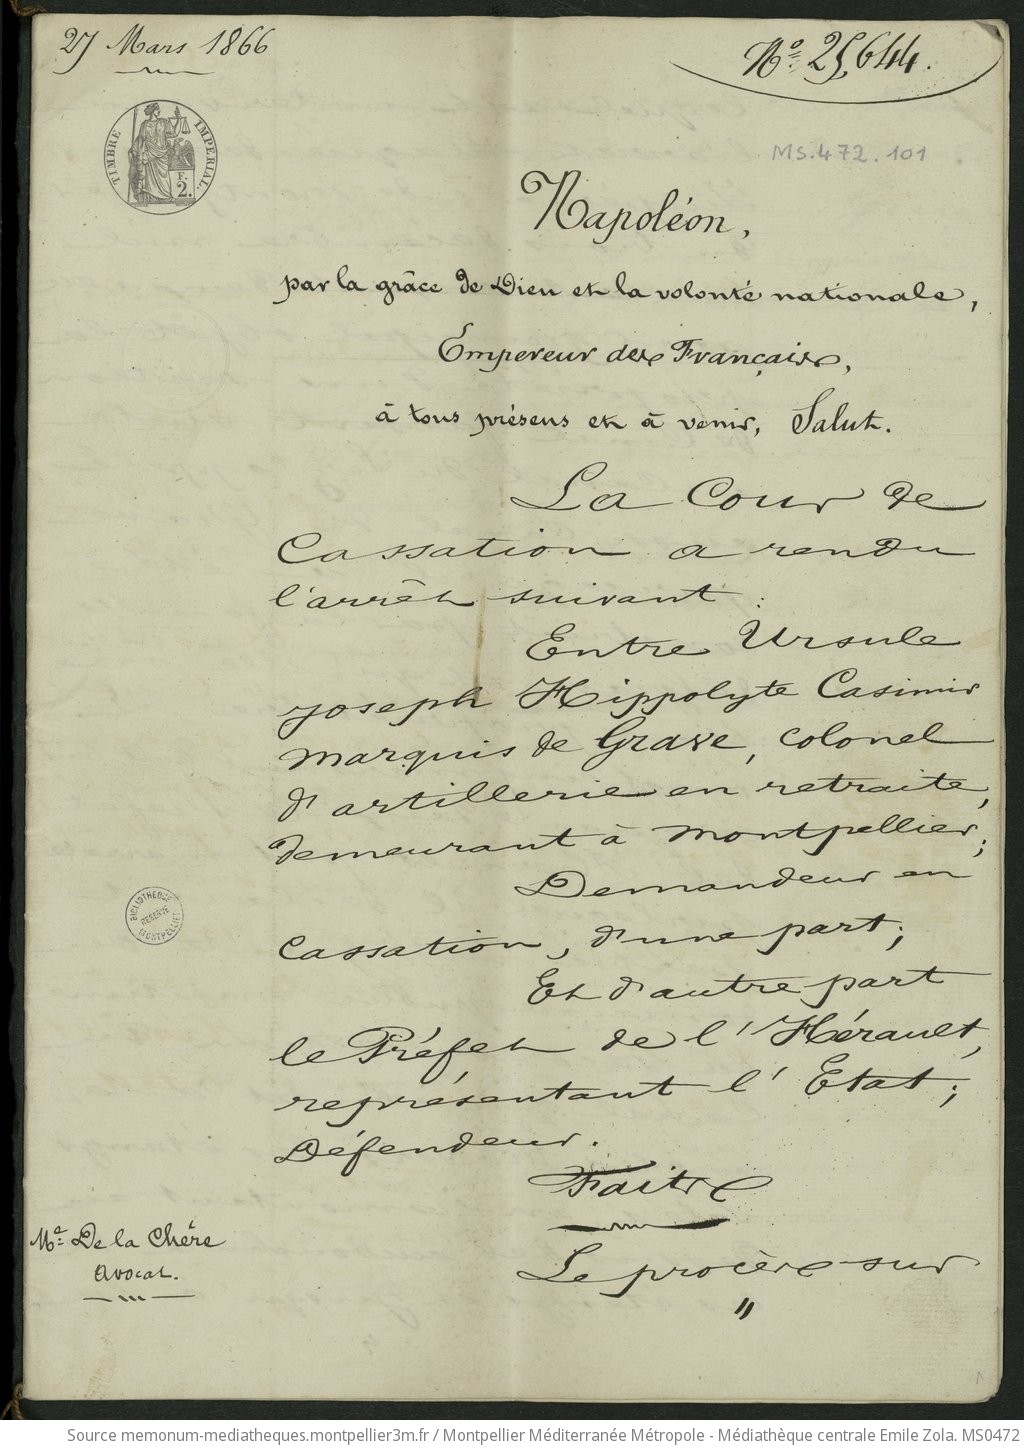 27 Mars 1866
N° 25,644.
TIMBRE IMPERIAL.
F.
2.
MS.472.101
Napoléon,
par la grâce de Dieu et la volonté nationale,
Empereur des Français,
à tous présens et à venir, Salut.
La Cour de
Cassation a rendu
l'arrêt suivant :
Entre Ursule
joseph Hippolyte Casimir
marquis de Grave, colonel
d'artillerie en retraite,
demeurant à montpellier;
Demandeur en
cassation, d'une part;
Et d'autre part
le Préfet de l'Hérault,
représentant l'Etat;
Défendeur.
Faits
Le procès sur
"
BIBLIOTHEQUE
RESERVE
MONTPELLIER
Me De la Chère
Avocat.
Source memonum-mediatheques.montpellier3m.fr / Montpellier Méditerranée Métropole - Médiathèque centrale Emile Zola. MS0472